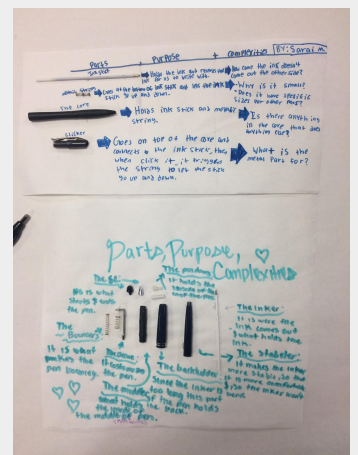 Parts + Purpose + Complexities BY: Sarai M.
Ink Part
Holds the ink and
How come the ink doesn't
come out the other side?
Goes at the bottom of ink stick and lets the ink
stick go up and down.
Why is it small?
Does it have specific
sizes for other pens?
The core
Holds ink stick and metal
string.
Is there anything
in the core that has
Clicker
Goes on top of the core and
connects to the ink stick, then
when click it, it triggers
the string to let the stick
go up and down.
What is the
metal part for?
Parts, Purpose,
Complexities
It holds the
The Inker:
It is were the
ink comes out
& what holds the
ink.
The
Bouncer:
It is what
makes the
pen bouncy.
The Stabeler:
It makes the inker
more stable, so that
it is more comfortable
& so the inker won't
bend.
The backholder:
Since the inker is
too long this part
of the pen holds
the back.
The middle:
holds the
the inside of
the middle of pen.
the pen.